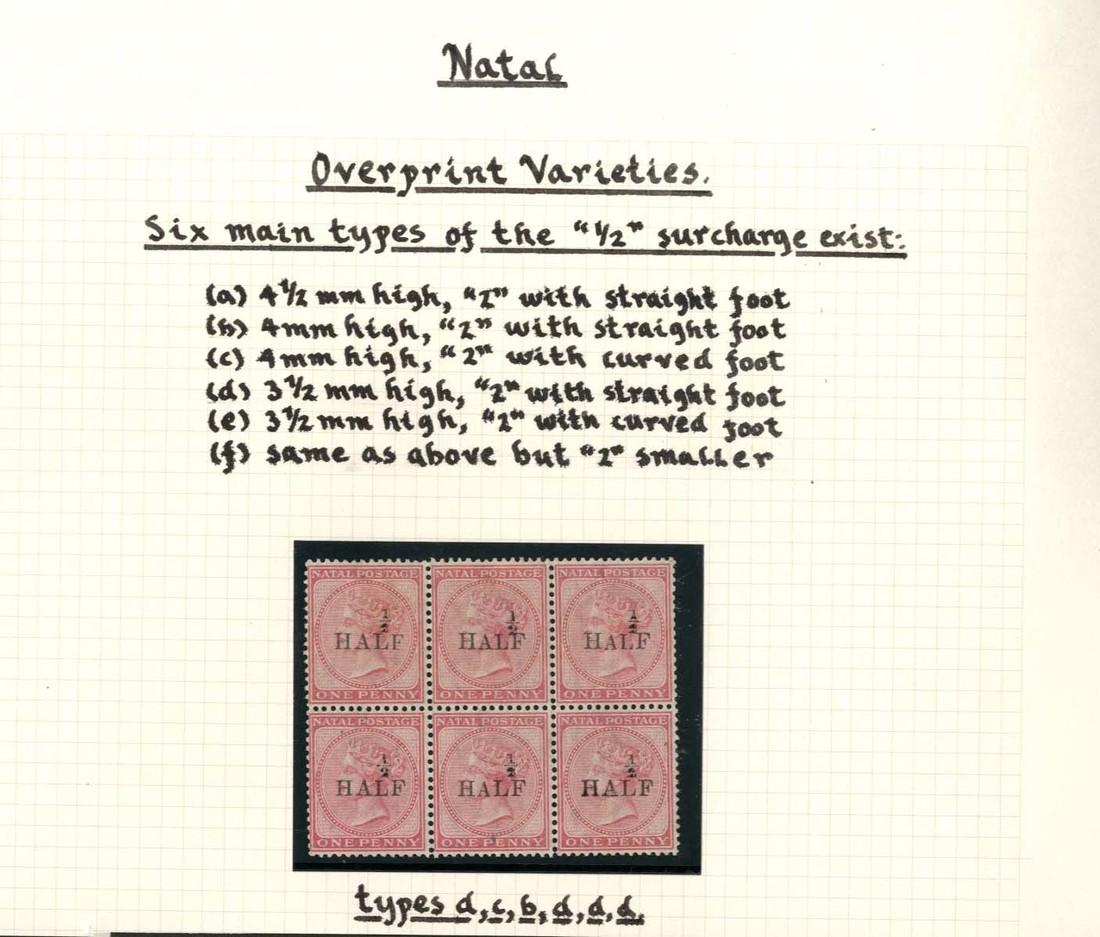 Natal
Overprint Varieties.
Six main types of the "½" surcharge exist:
(a) 4½ mm high, "2" with straight foot
(b) 4mm high, "2" with straight foot
(c) 4mm high, "2" with curved foot
(d) 3½ mm high, "2" with straight foot
(e) 3½ mm high, "2" with curved foot
(f) same as above but "2" smaller
NATAL POSTAGE NATAL POSTAGE NATAL POSTAGE
½ ½ ½
HALF HALF HALF
ONE PENNY ONE PENNY ONE PENNY
NATAL POSTAGE NATAL POSTAGE NATAL POSTAGE
½ ½ ½
HALF HALF HALF
ONE PENNY ONE PENNY ONE PENNY
types d, c, b, d, d, d.